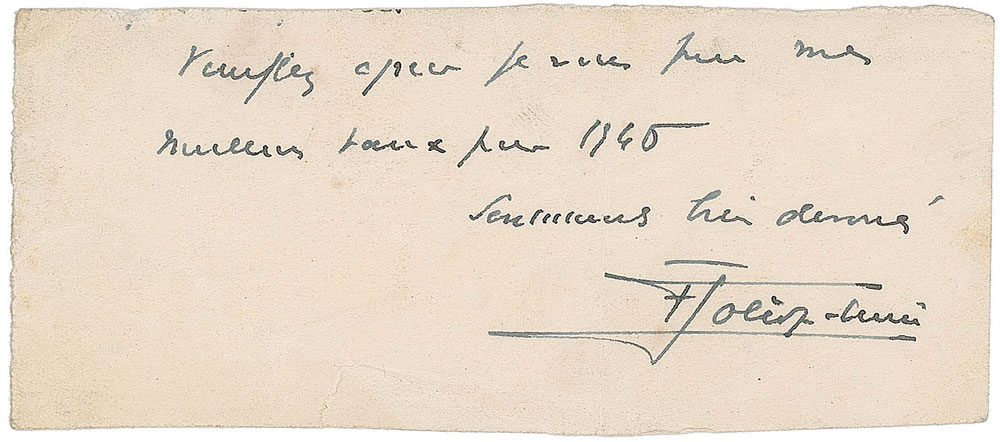 Veuillez agréer je vous prie mes
meilleurs vœux pour 1945
Sentiments très dévoués
F Joliot-Curie